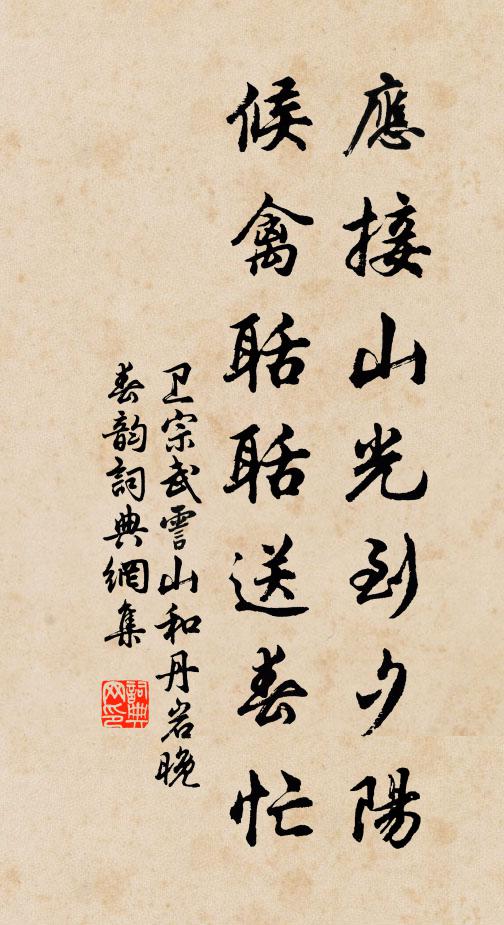 應接山光到夕陽
候禽聒聒送春忙
卫宗武霅山和丹岩晚
春韵詞典網集
詞典网印